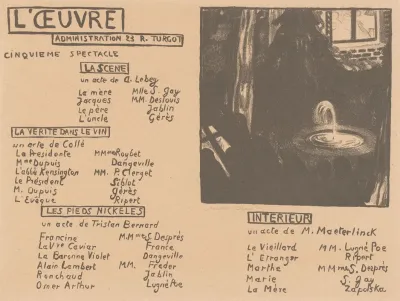 L'ŒUVRE
ADMINISTRATION 23 R. TURGOT
CINQUIEME SPECTACLE
LA SCENE
un acte de A. Lebey
La mère Mlle S. Gay
Jacques MM. Deslouis
Le père Jablin
L'uncle Gérès
LA VERITE DANS LE VIN
un acte de Collé
La Présidente MMmes Roybet
Mme Dupuis Dangeville
L'abbé Kensington MM. P. Clerget
Le Président Siblot
M. Dupuis Gérès
L'Évêque Ripert
LES PIEDS NICKELES
un acte de Tristan Bernard
Francine MMmes Desprès
La Vve Caviar France
La Baronne Violet Dangeville
Alain Lambert MM. Freder
Ronchaud Jablin
Omer Arthur Lugné Poe
INTERIEUR
un acte de M. Maeterlinck
Le Vieillard MM. Lugné Poe
L' Etranger Ripert
Marthe MMmes S. Desprès
Marie S. Gay
La Mère Zapolska